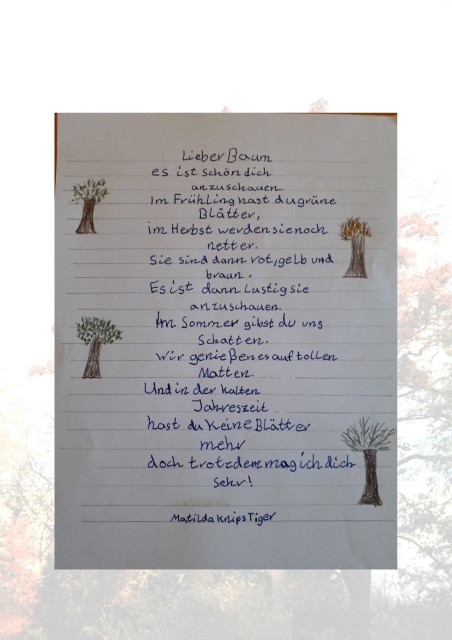 Lieber Baum
es ist schön dich
anzuschauen
Im Frühling hast du grüne
Blätter,
im Herbst werden sie noch
netter.
Sie sind dann rot, gelb und
braun.
Es ist dann lustig sie
anzuschauen.
Im Sommer gibst du uns
Schatten.
Wir genießen es auf tollen
Matten.
Und in der kalten
Jahreszeit
hast du keine Blätter
mehr
doch trotzdem mag ich dich
sehr!
Matilda Knips Tiger